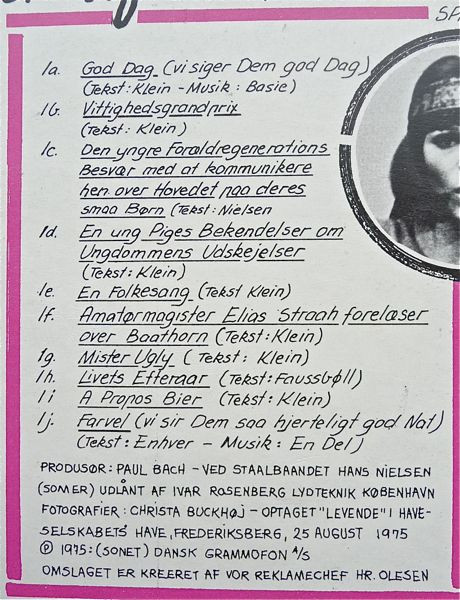 SP
1a. God Dag (vi siger Dem god Dag)
(Tekst: Klein - Musik: Basie)
1b. Vittighedsgrandprix
(Tekst: Klein)
1c. Den yngre Forældregenerations
Besvær med at kommunikere
hen over Hovedet paa deres
smaa Børn (Tekst: Nielsen
1d. En ung Piges Bekendelser om
Ungdommens Udskejelser
(Tekst: Klein)
1e. En Folkesang (Tekst Klein)
1f. Amatørmagister Elias Straah forelæser
over Baathorn (Tekst: Klein)
1g. Mister Ugly (Tekst: Klein)
1h. Livets Efteraar (Tekst: Faussbøll)
1i A Propos Bier (Tekst: Klein)
1j. Farvel (vi sir Dem saa hjerteligt god Nat)
(Tekst: Enhver - Musik: En Del)
PRODUSØR: PAUL BACH - VED STAALBAANDET HANS NIELSEN
(SOMER) UDLÅNT AF IVAR ROSENBERG LYDTEKNIK KØBENHAVN
FOTOGRAFIER: CHRISTA BUCKHØJ - OPTAGET "LEVENDE" I HAVE-
SELSKABETS HAVE, FREDERIKSBERG, 25 AUGUST 1975
℗ 1975: (SONET) DANSK GRAMMOFON A/S
OMSLAGET ER KREERET AF VOR REKLAMECHEF HR. OLESEN